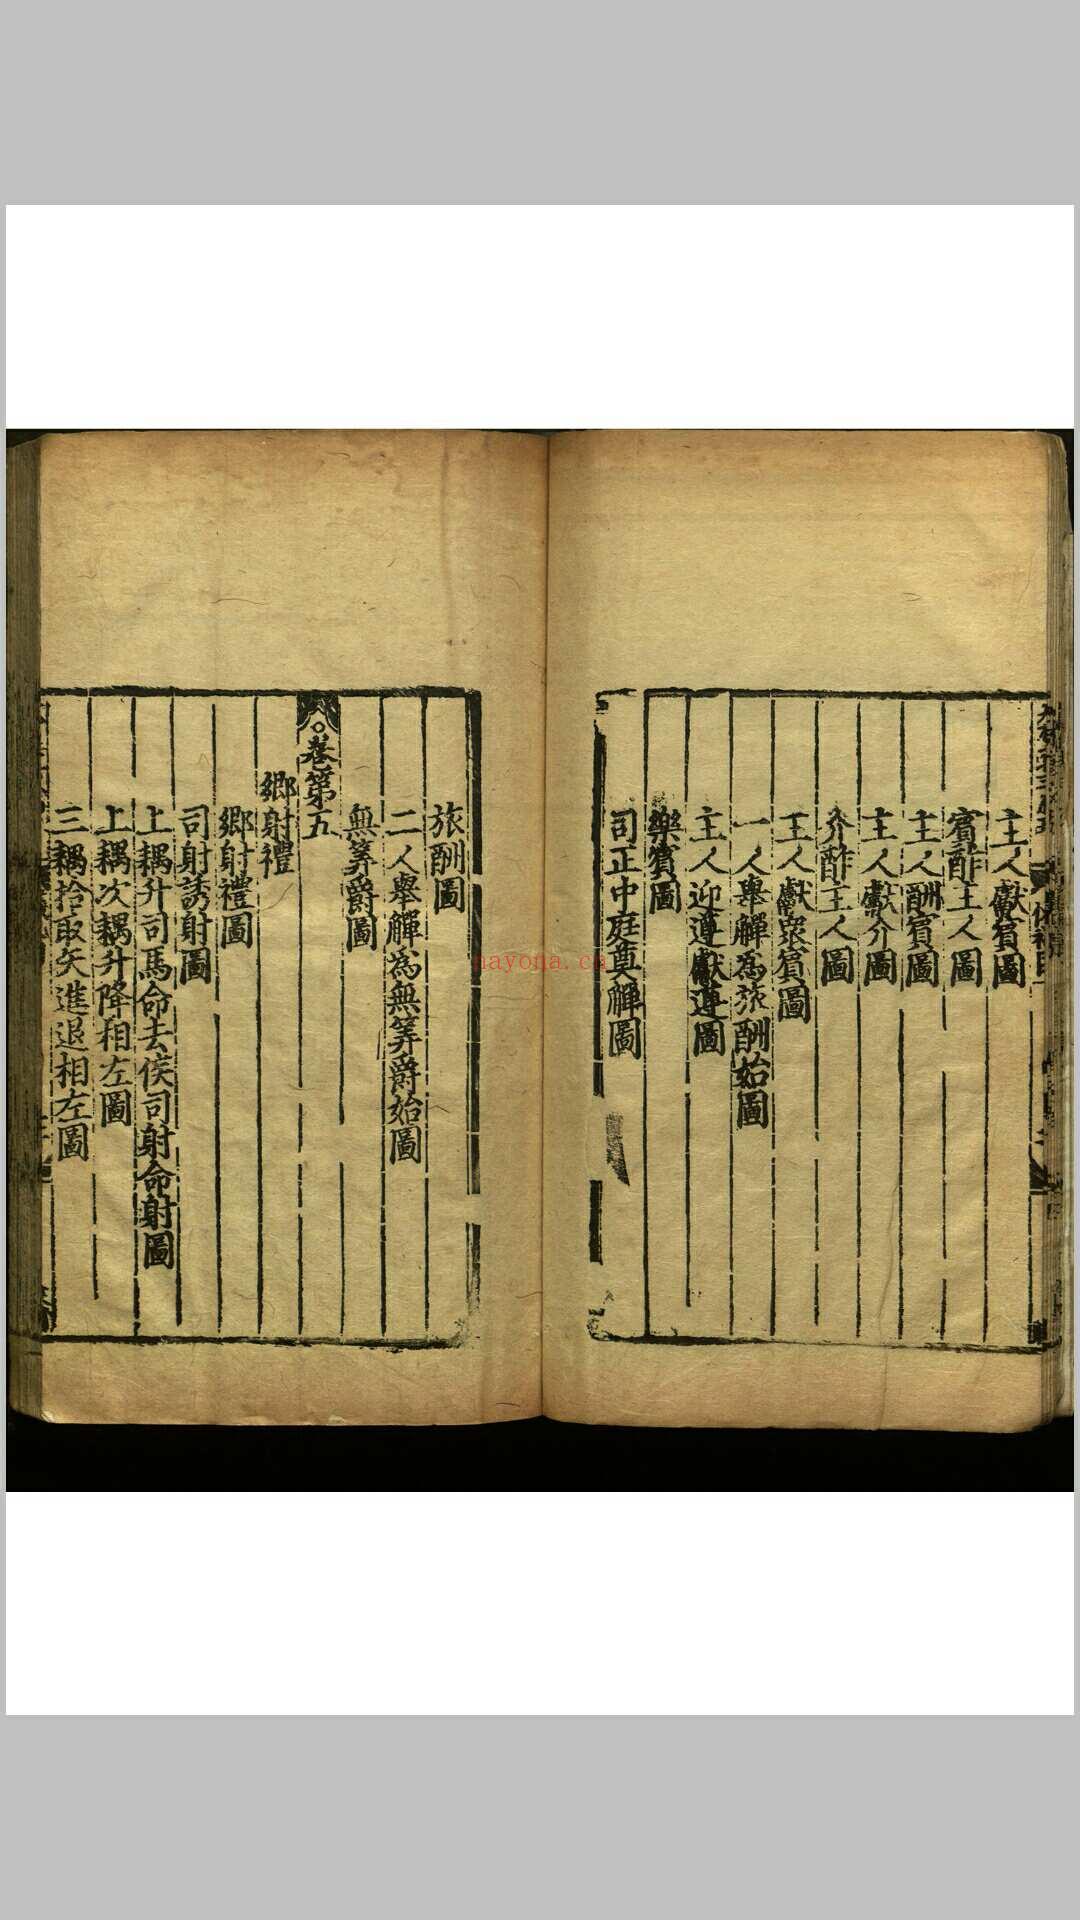 主人獻賓圖
賓酢主人圖
主人酬賓圖
主人獻介圖
介酢主人圖
主人獻衆賓圖
一人舉觶為旅酬始圖
主人迎遵獻遵圖
樂賓圖
司正中庭奠觶圖
旅酬圖
二人舉觶為無筭爵始圖
無筭爵圖
卷第五
鄉射禮
鄉射禮圖
司射誘射圖
上耦升司馬命去侯司射命射圖
上耦次耦升降相左圖
三耦拾取矢進退相左圖
nayona.cn